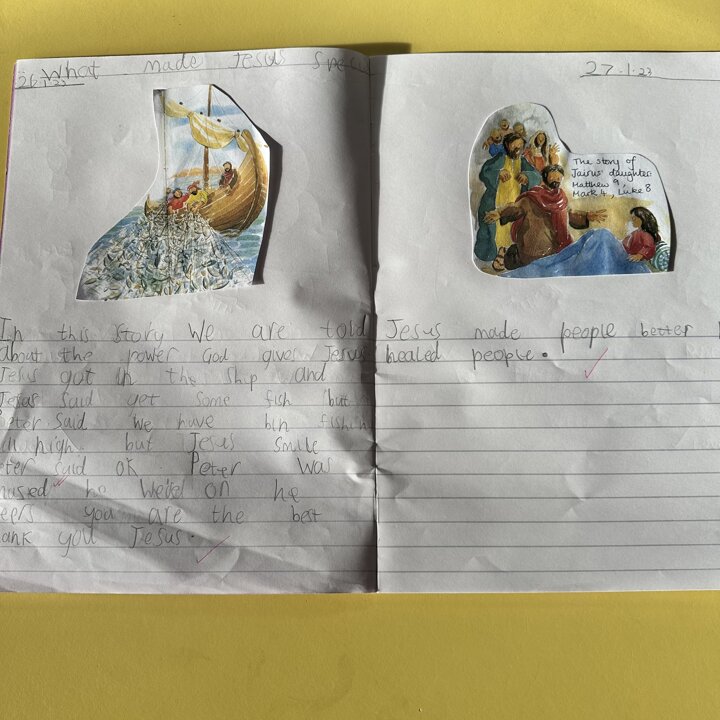 What made Jesus Speci
26.1.23
In this story we are told
about the power God gives Jesus
Jesus got in the ship and
Jesus said get some fish but
Peter said we have bin fishin
all nigh but Jesus smile
Peter said OK Peter was
he on he
you are the best
thank you Jesus.
27.1.23
The story of
Jairus' daughter
Matthew 9,
Mark 4, Luke 8
Jesus made people better
healed people.